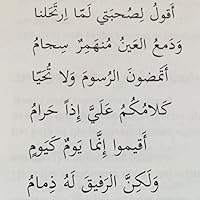 أَقولُ لِصُحبَتي لَمّا اِرتَحَلنا
وَدَمعُ العَينُ مُنهَمِرٌ سِجامُ
أَتَمضونَ الرُسومَ وَلا تُحَيّا
كَلامُكُمُ عَلَيَّ إِذاً حَرامُ
أَقيموا إِنَّما يَومٌ كَيَومٍ
وَلَكِنَّ الرَفيقَ لَهُ ذِمامُ